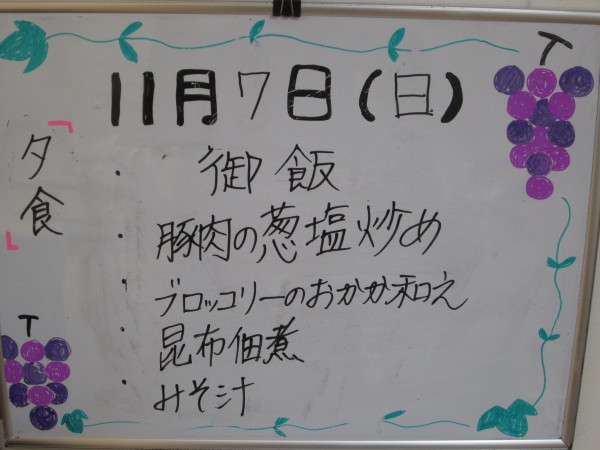 11月7日(日)
「夕食」
・御飯
・豚肉の葱塩炒め
・ブロッコリーのおかか和え
・昆布佃煮
・みそ汁